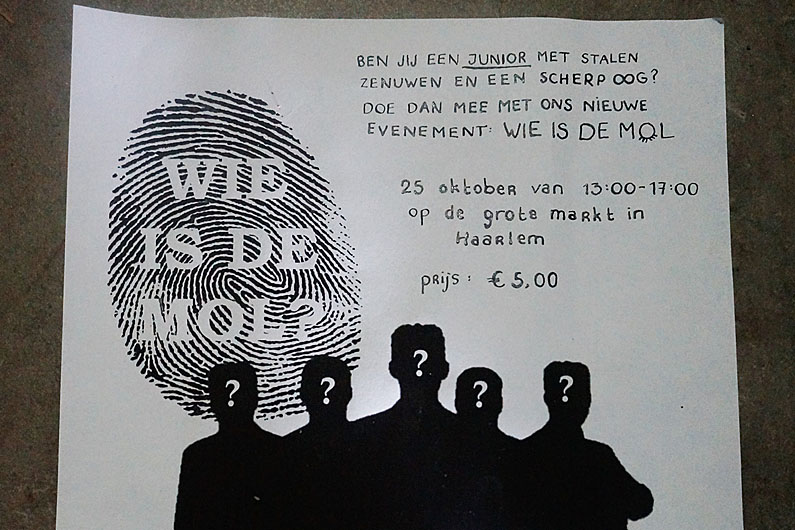 BEN JIJ EEN JUNIOR MET STALEN
ZENUWEN EN EEN SCHERP OOG?
DOE DAN MEE MET ONS NIEUWE
EVENEMENT: WIE IS DE MOL
25 oktober van 13:00-17:00
op de grote markt in
Haarlem
prijs: € 5,00
WIE
IS DE
MOL?
? ? ? ? ?